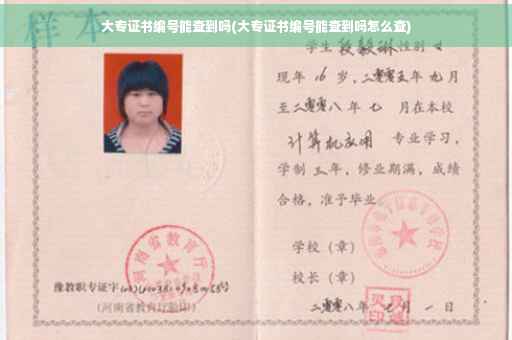 样本
大专证书编号能查到吗(大专证书编号能查到吗怎么查)
学生 段毅琳 性别 女
现年 16 岁，二零零五年 九月
至二零零八年 七 月在本校
计算机应用 专业学习，
学制 三 年，修业期满，成绩
合格，准予毕业
学校（章）
校长（章）
二零零八年 七 月 一 日
河南省教育厅
豫教职专证字
(河南省教育厅验印)